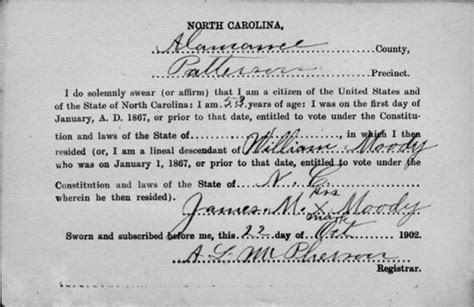 NORTH CAROLINA,
Alamance County,
Patterson Precinct.
I do solemnly swear (or affirm) that I am a citizen of the United States and
of the State of North Carolina: I am 53 years of age: I was on the first day of
January, A. D. 1867, or prior to that date, entitled to vote under the Constitu-
tion and laws of the State of , in which I then
resided (or, I am a lineal descendant of William Moody
who was on January 1, 1867, or prior to that date, entitled to vote under the
Constitution and laws of the State of N. C.
wherein he then resided).
his
James M. X Moody
mark
Sworn and subscribed before me, this 22 day of Oct 1902.
A L McPherson
Registrar.